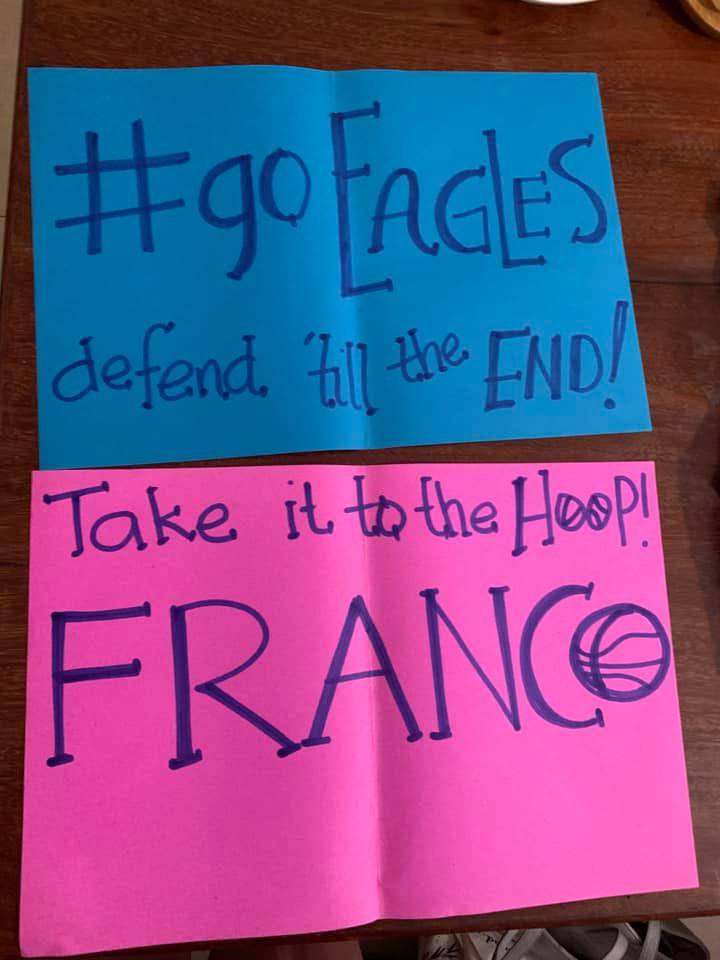 #go EAGLES
defend 'till the END!
Take it to the HOOP!
FRANCO